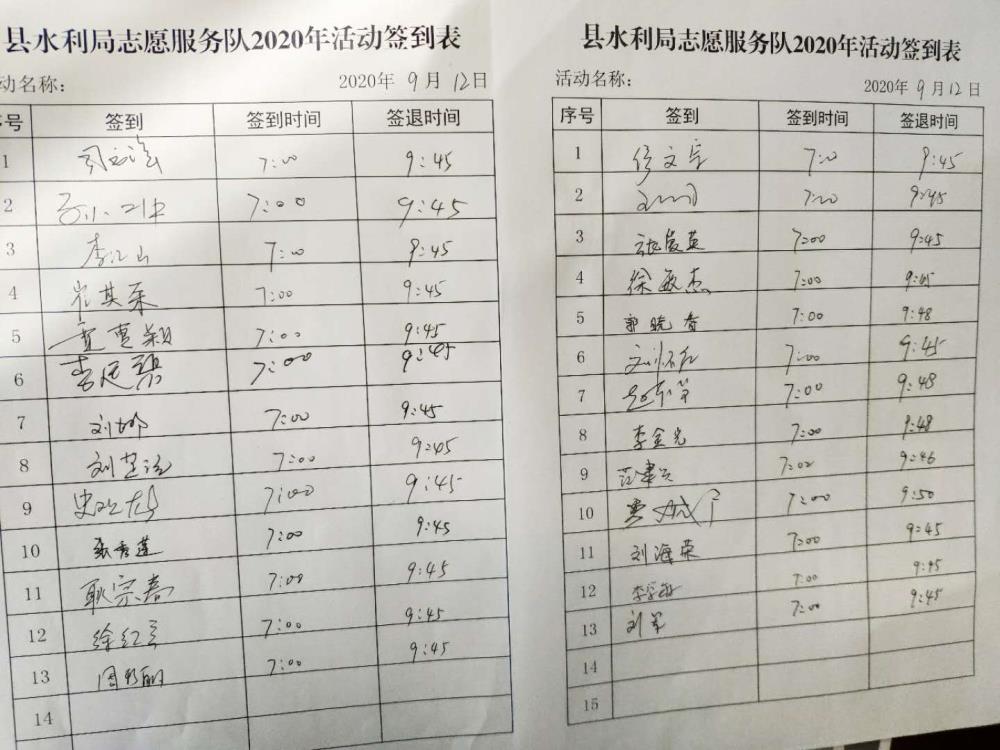 县水利局志愿服务队2020年活动签到表
动名称： 2020年 9 月 12 日
序号 签到 签到时间 签退时间
1 7:00 9:45
2 7:00 9:45
3 李江山 7:00 9:45
4 崔其荣 7:00 9:45
5 7:00 9:45
6 7:00 9:45
7 刘娜 7:00 9:45
8 7:00 9:45
9 7:00 9:45
10 张秀莲 7:00 9:45
11 耿宗春 7:00 9:45
12 徐红 7:00 9:45
13 7:00 9:45
14
县水利局志愿服务队2020年活动签到表
活动名称： 2020年 9 月 12 日
序号 签到 签到时间 签退时间
1 7:00 9:45
2 7:00 9:45
3 张俊英 7:00 9:45
4 徐敏杰 7:00 9:45
5 郭晓香 7:00 9:48
6 7:00 9:45
7 7:00 9:48
8 李金光 7:00 9:48
9 7:00 9:46
10 7:00 9:50
11 刘海荣 7:00 9:45
12 7:00 9:45
13 刘军 7:00 9:45
14
15